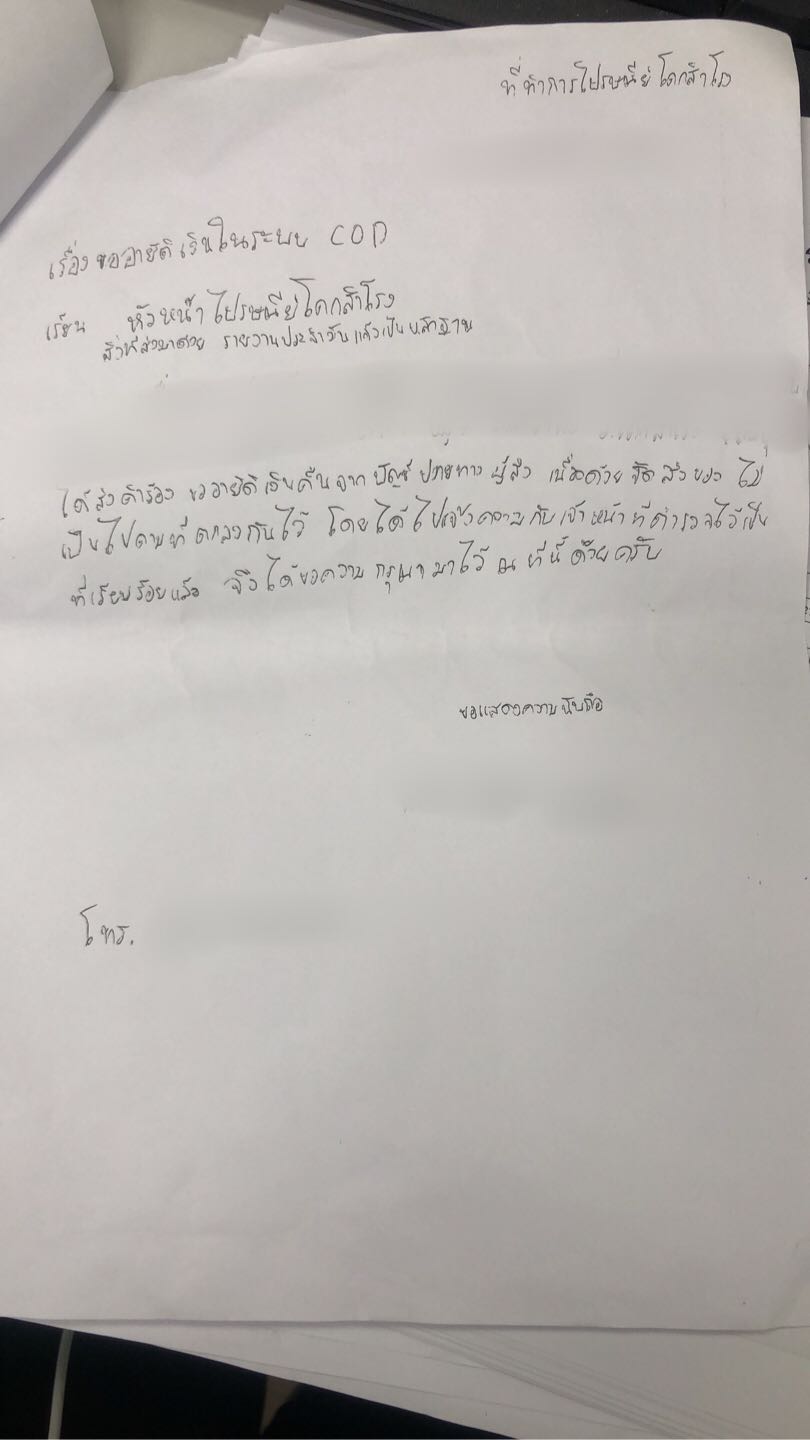 ที่ทำการไปรษณีย์โคกสำโรง
เรื่อง ขออายัดเงินในระบบ COD
เรียน หัวหน้าไปรษณีย์โคกสำโรง
สิ่งที่ส่งมาด้วย รายงานประจำวันแล้วเป็นหลักฐาน
ได้ส่งคำร้อง ขออายัดเงินคืนจากบัญชีปลายทางผู้ส่ง เนื่องด้วย จัดส่งของ ไม่
เป็นไปตามที่ตกลงกันไว้ โดยได้ไปแจ้งความกับเจ้าหน้าที่ตำรวจไว้เป็น
ที่เรียบร้อยแล้ว จึงได้ขอความกรุณามาไว้ ณ ที่นี้ด้วยครับ
ขอแสดงความนับถือ
โทร.